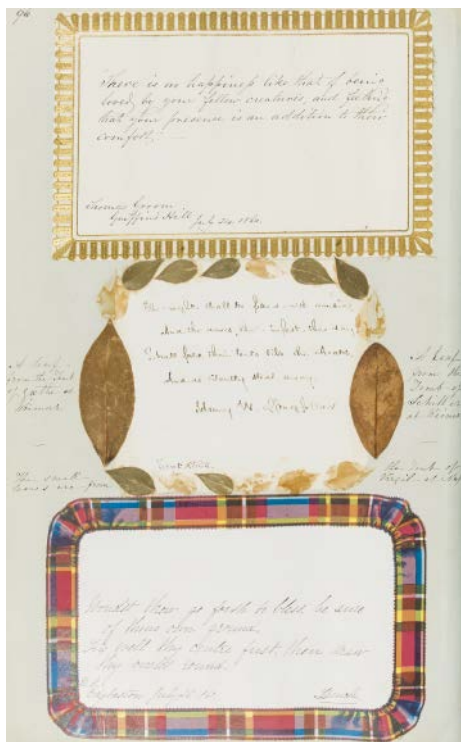 96
There is no happiness like that of being
loved by your fellow creatures, and feeling
that your presence is an addition to their
comfort.
Thomas Groom.
Griffins Hall
July 24. 186
The night shall be filled with music
And the cares, that infest the day,
Shall fold their tents like the Arabs,
And as silently steal away.
Henry W. Longfellow
A leaf
from the Tomb
of Goethe at
Weimar
A leaf
from the
Tomb of
Schiller
at Weimar
The small
leaves are from
the Tomb of
Virgil at
Wouldst thou go forth to bless, be sure
of thine own ground.
Fix well thy centre first, then draw
thy circle round.
July